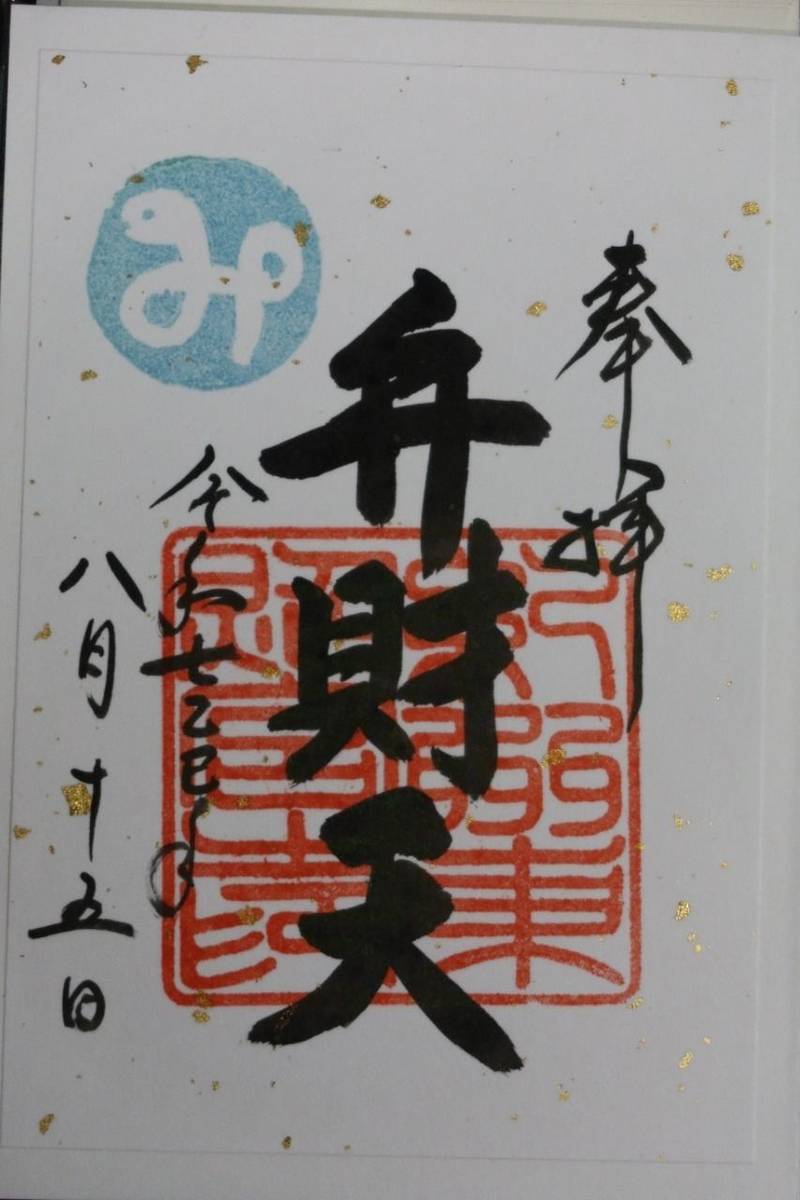 奉拝
弁財天
令和七乙巳年
八月十五日
み